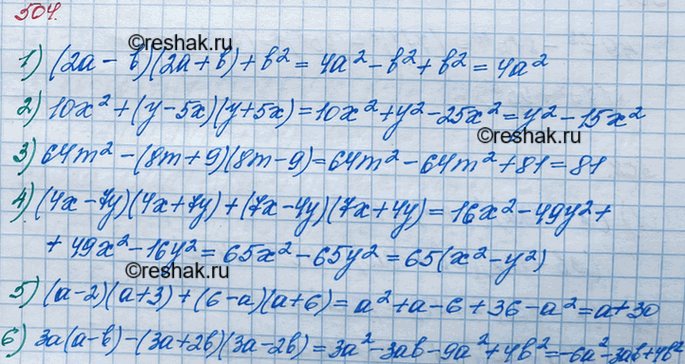 504.
©reshak.ru
1) (2a - b)(2a + b) + b² = 4a² - b² + b² = 4a²
2) 10x² + (y - 5x)(y + 5x) = 10x² + y² - 25x² = y² - 15x²
©reshak.ru
3) 64m² - (8m + 9)(8m - 9) = 64m² - 64m² + 81 = 81
4) (4x - 7y)(4x + 7y) + (7x - 4y)(7x + 4y) = 16x² - 49y² +
+ 49x² - 16y² = 65x² - 65y² = 65(x² - y²)
©reshak.ru
5) (a - 2)(a + 3) + (6 - a)(a + 6) = a² + a - 6 + 36 - a² = a + 30
6) 3a(a - b) - (3a + 2b)(3a - 2b) = 3a² - 3ab - 9a² + 4b² = -6a² - 3ab + 4b²